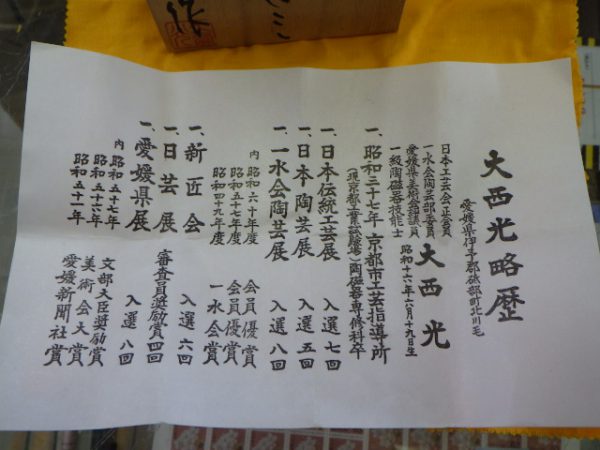 大西光略歴
愛媛県伊予郡砥部町北川毛
日本工芸会正会員
一水会陶芸部委員
愛媛県美術会評議員
一級陶磁器技能士
大西光
昭和十六年六月十九日生
一、昭和三十七年京都市工芸指導所
(現京都工業試験場)陶磁器専修科卒
一、日本伝統工芸展 入選七回
一、日本陶芸展 入選五回
一、一水会陶芸展 入選八回
内 昭和六十年度 会員優賞
昭和五十七年度 会員優賞
昭和四十九年度 一水会賞
一、新匠会 入選六回
一、日芸展 審査員奨励賞四回
一、愛媛県展 入選八回
内 昭和五十七年 文部大臣奨励賞
昭和五十六年 美術会大賞
昭和五十一年 愛媛新聞社賞
作